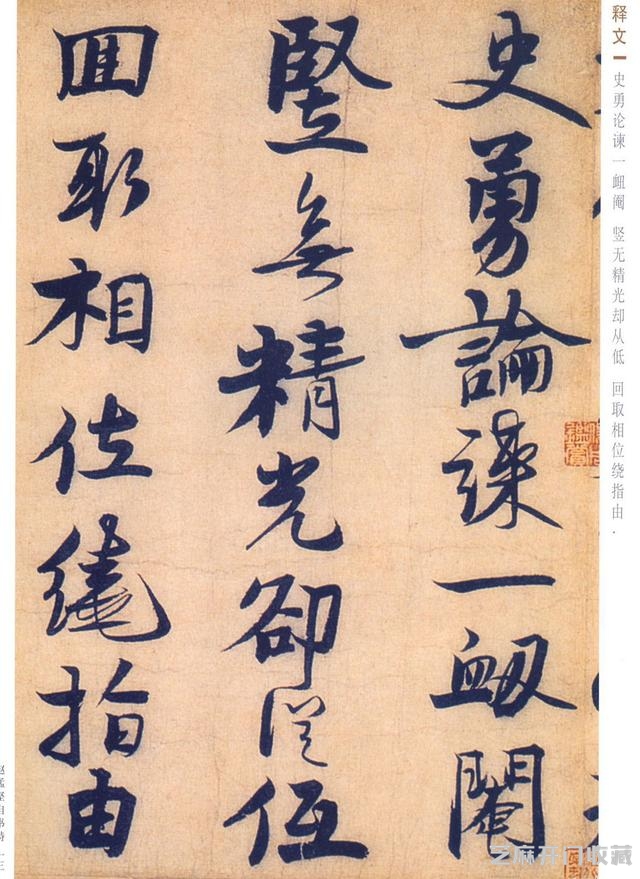 释文 史勇论谏一衄阉 竖无精光却从低 回取相位绕指由.
史勇論諫一衂閹
竪無精光卻從低
回取相位繞指由
赵孟坚自书诗 一三
芝麻开门收藏